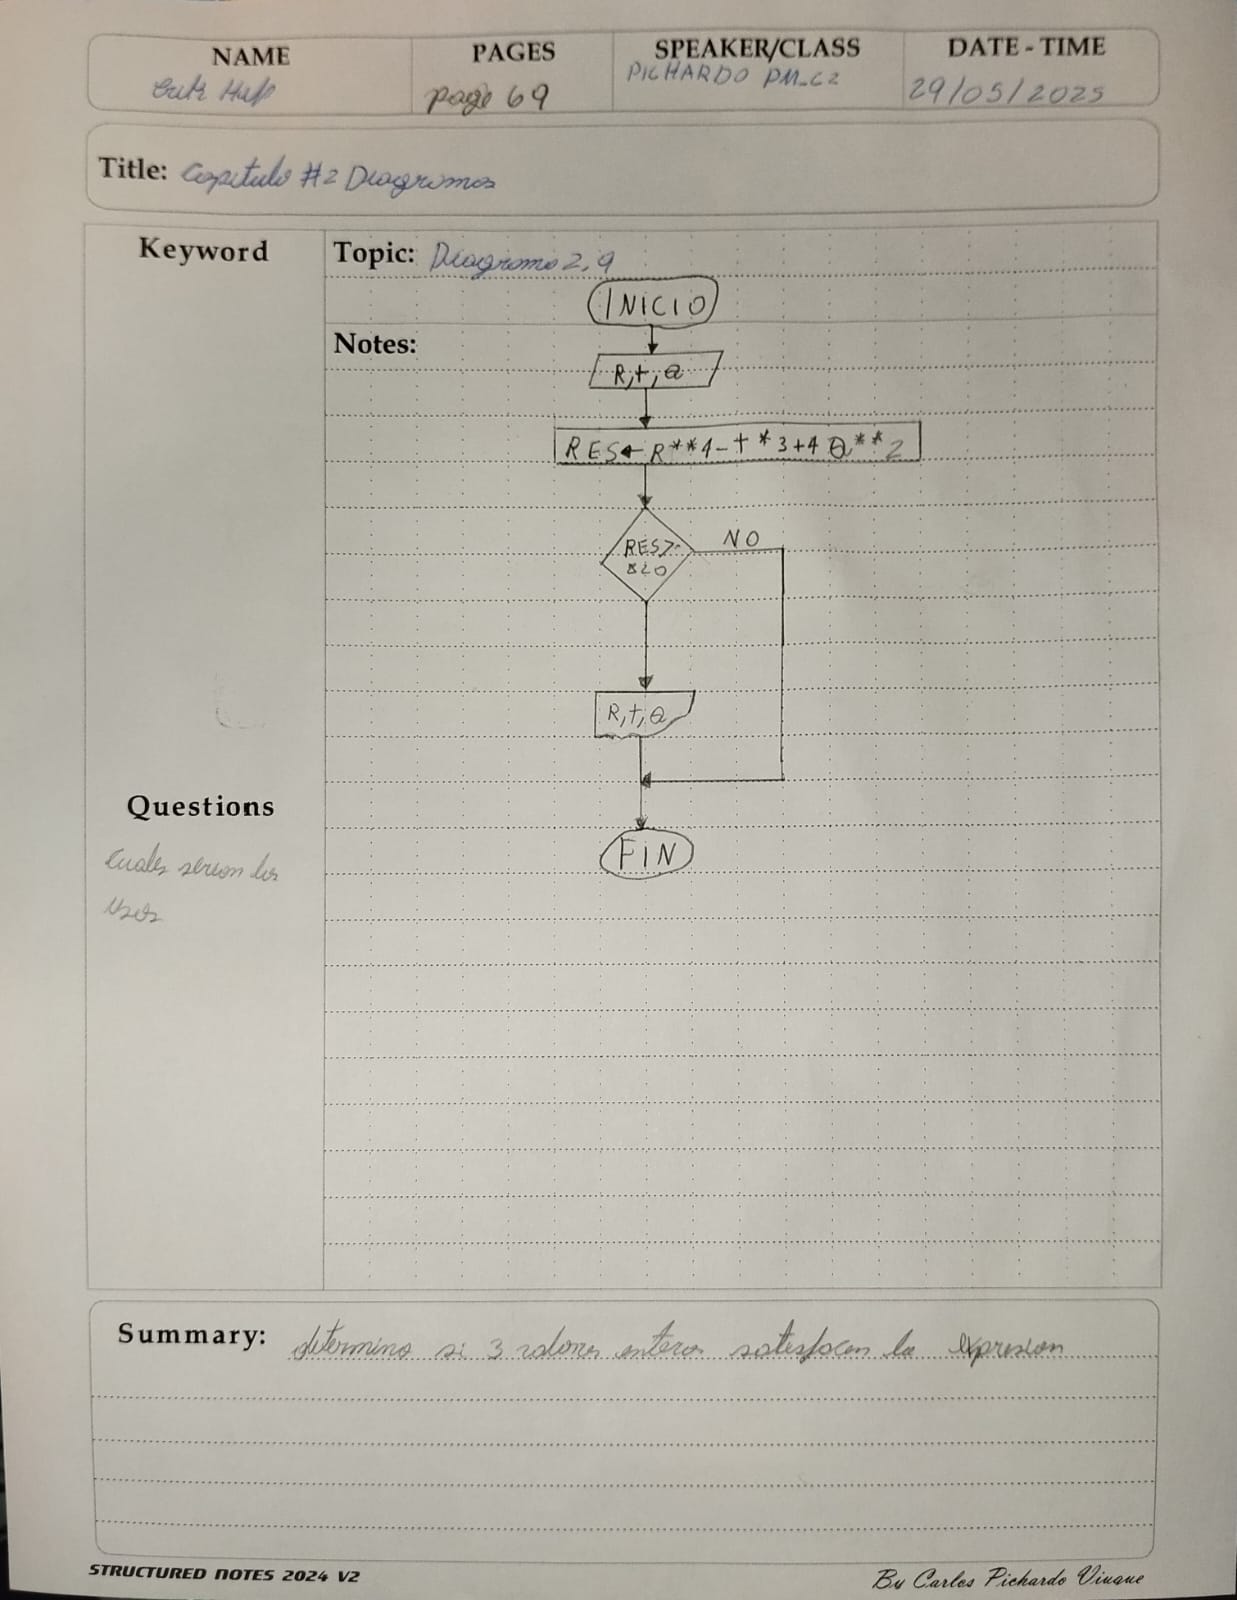 NAME PAGES SPEAKER/CLASS DATE - TIME
page 69 PICHARDO PM-C2 29/05/2025
Title: Capitulo #2 Diagramas
Keyword
Topic: Diagrama 2,9
INICIO
Notes:
R,t,Q
RES← R**4-t*3+4Q**2
RES>
820
NO
R,t,Q
FIN
Questions
Cuales serian los
usos
Summary: determina si 3 valores enteros satisfacen la expresion
STRUCTURED NOTES 2024 V2
By Carlos Pichardo Viuque